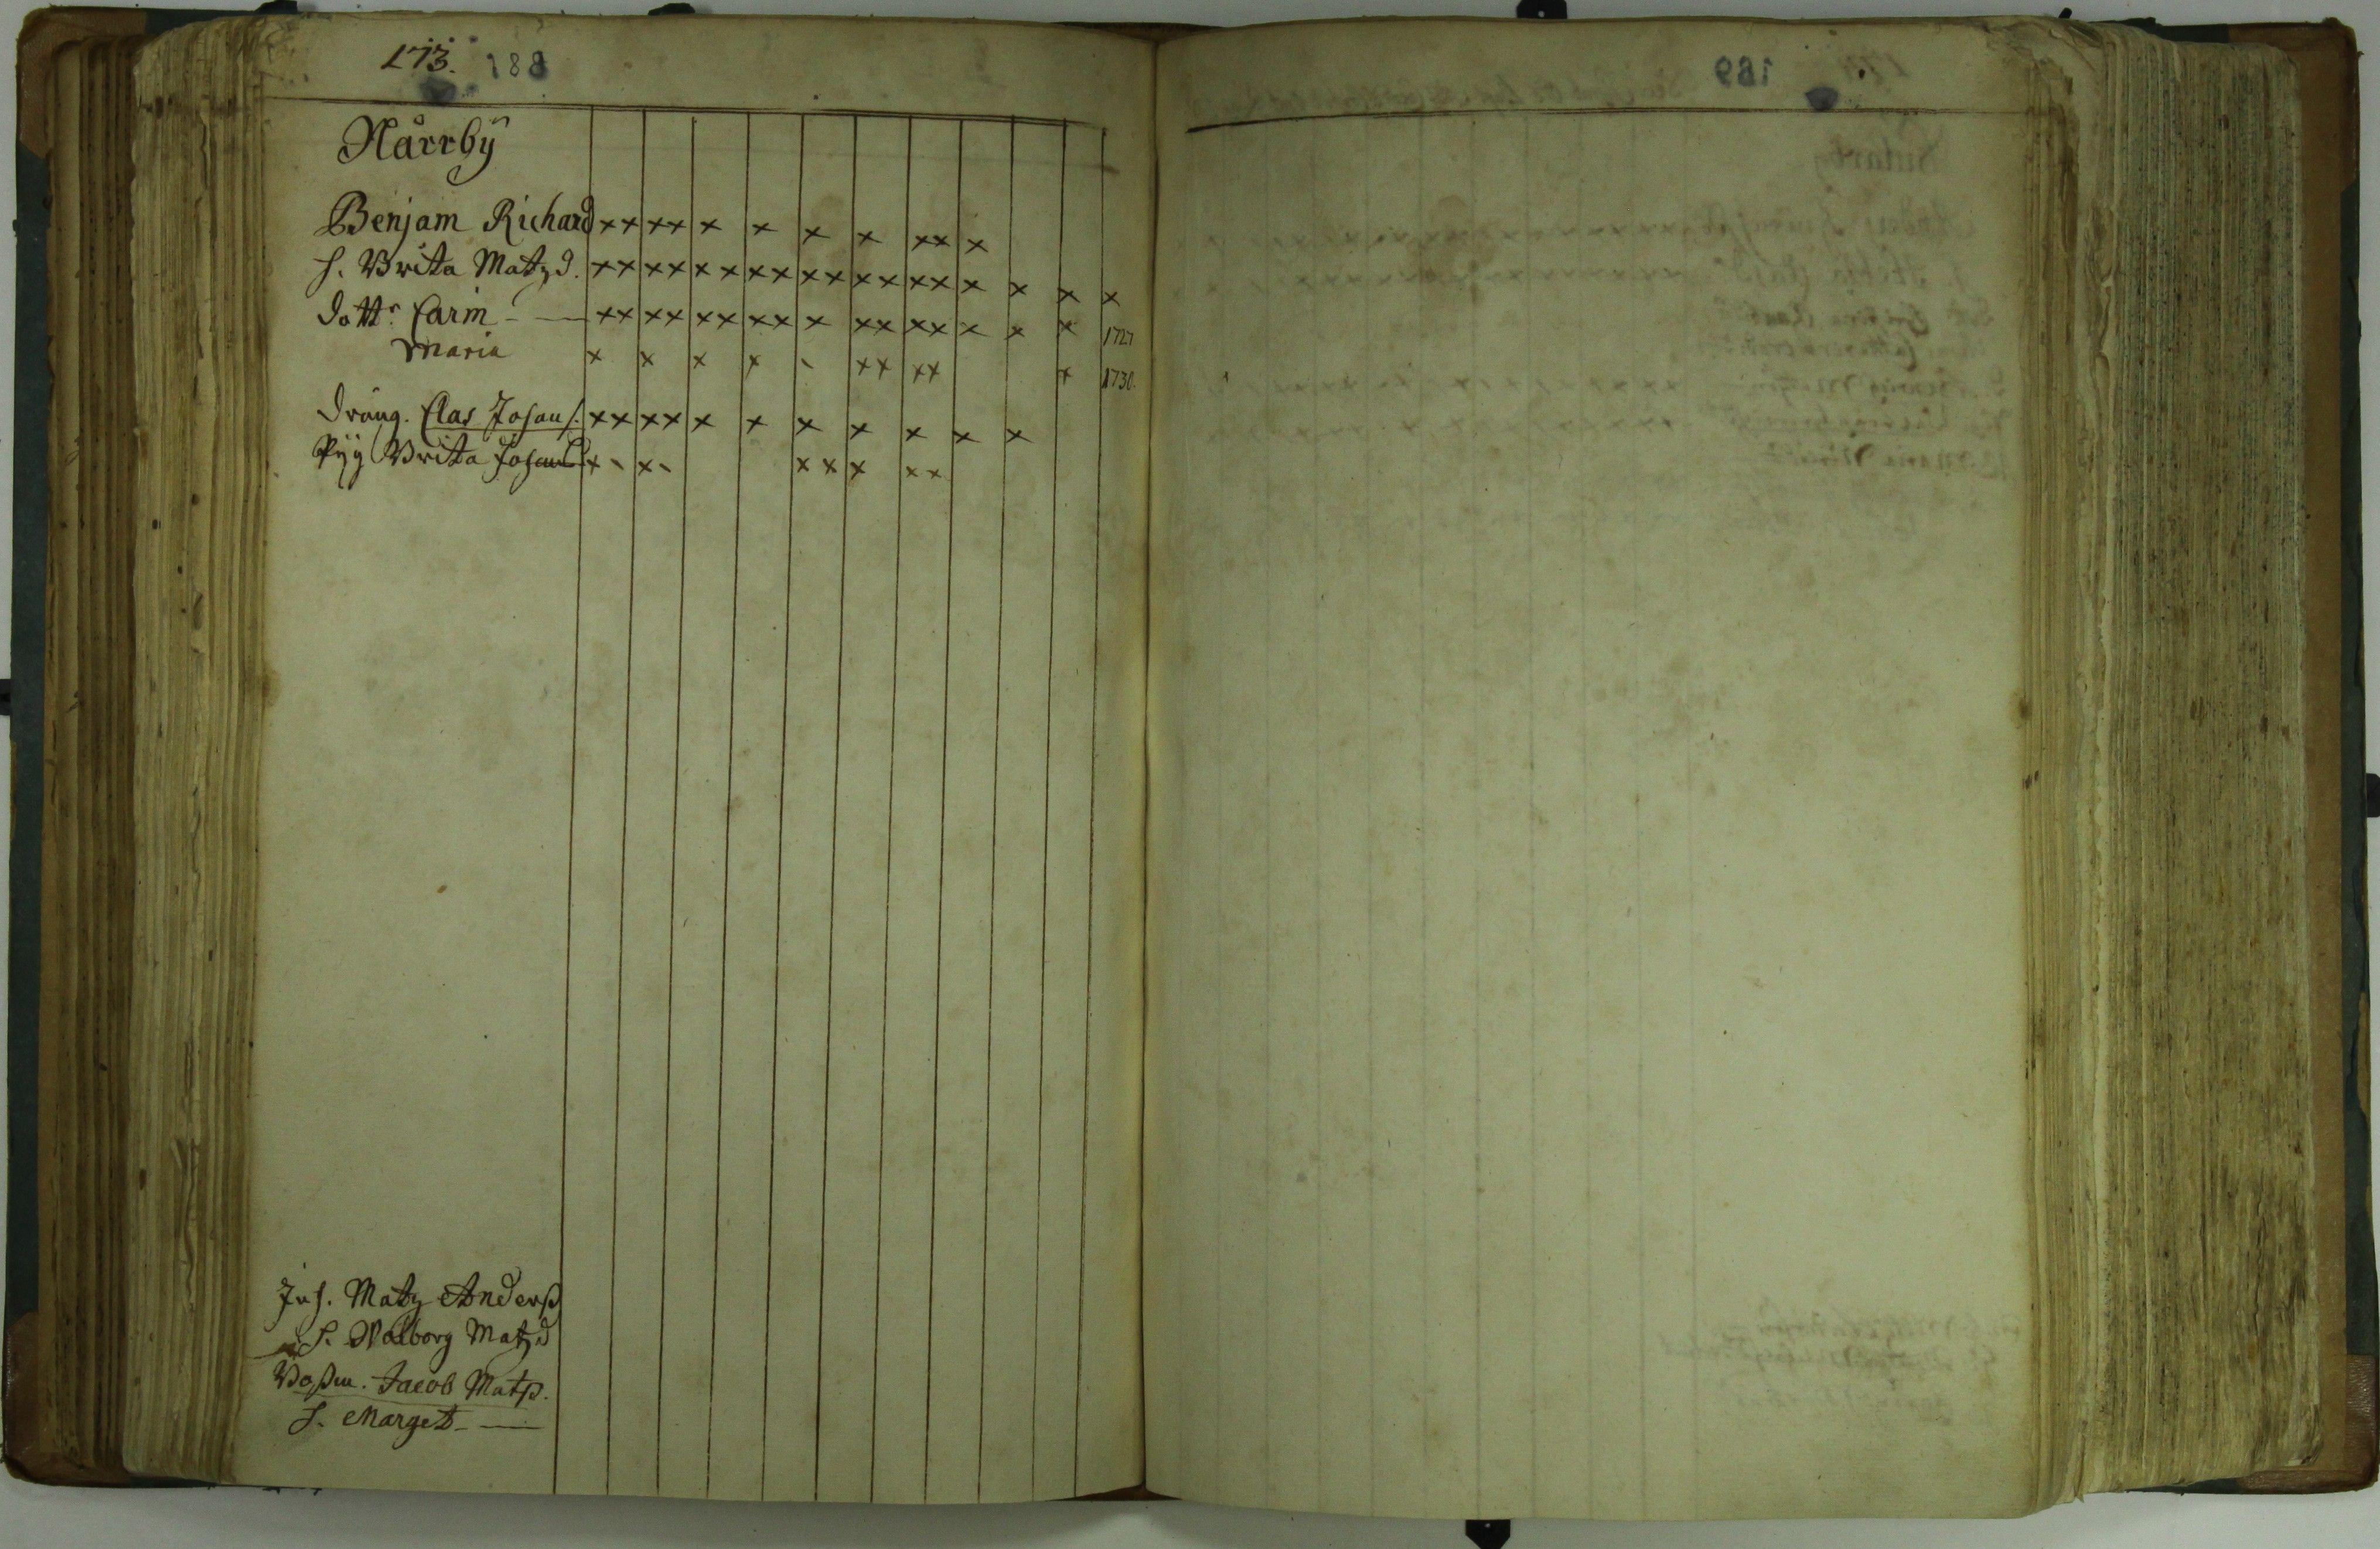 173. 188
Nårrby
Benjam Richard ×× ×× × × × × ×× ×
h. Brita Matzd. ×× ×× ×× ×× ×× ×× ×× × × × ×
dottr Carin - — ×× ×× ×× ×× × ×× ×× × × × 1727
Maria × × × × - ×× ×× × 1730.
dräng. Clas Johans. ×× ×× × × × × × × ×
Pyg Brita × - × - ×× × ××
Inh. Matz Anderß
h. Walborg Matzd
Jacob Matß.
h. Marget - —
189